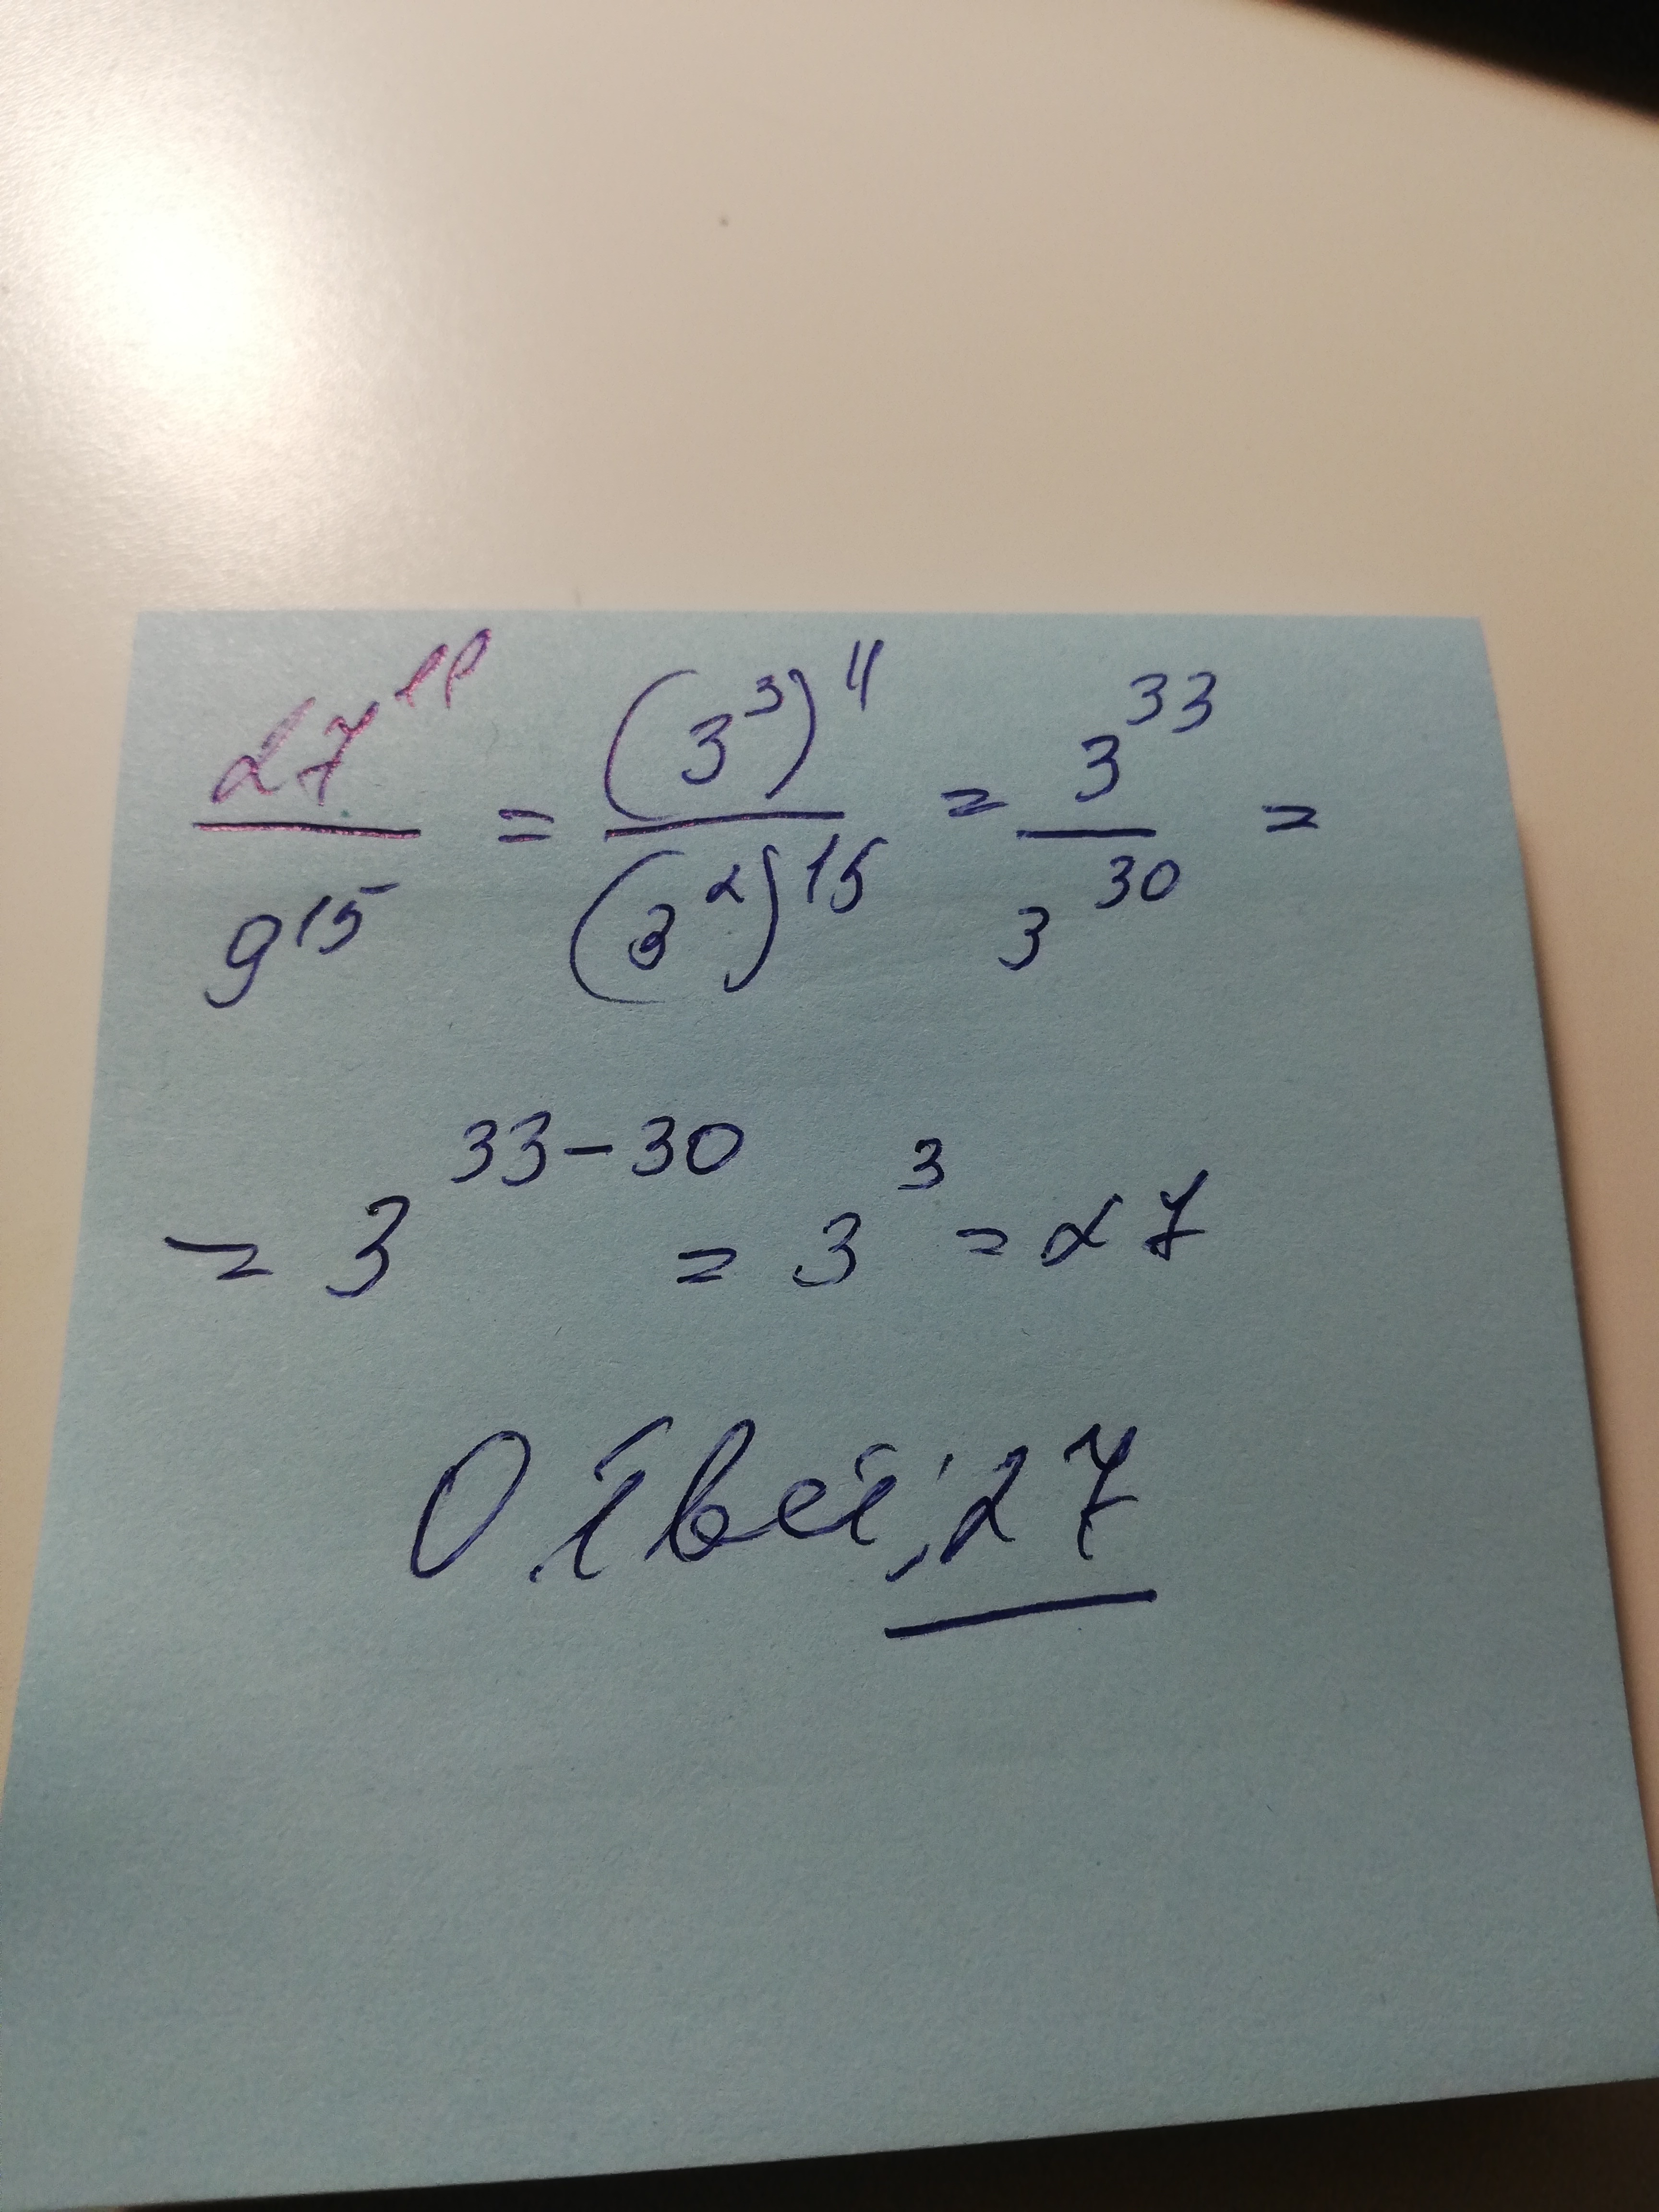 27¹¹/9¹⁵ = (3³)¹¹/(3²)¹⁵ = 3³³/3³⁰ =
= 3³³⁻³⁰ = 3³ = 27
Ответ: 27